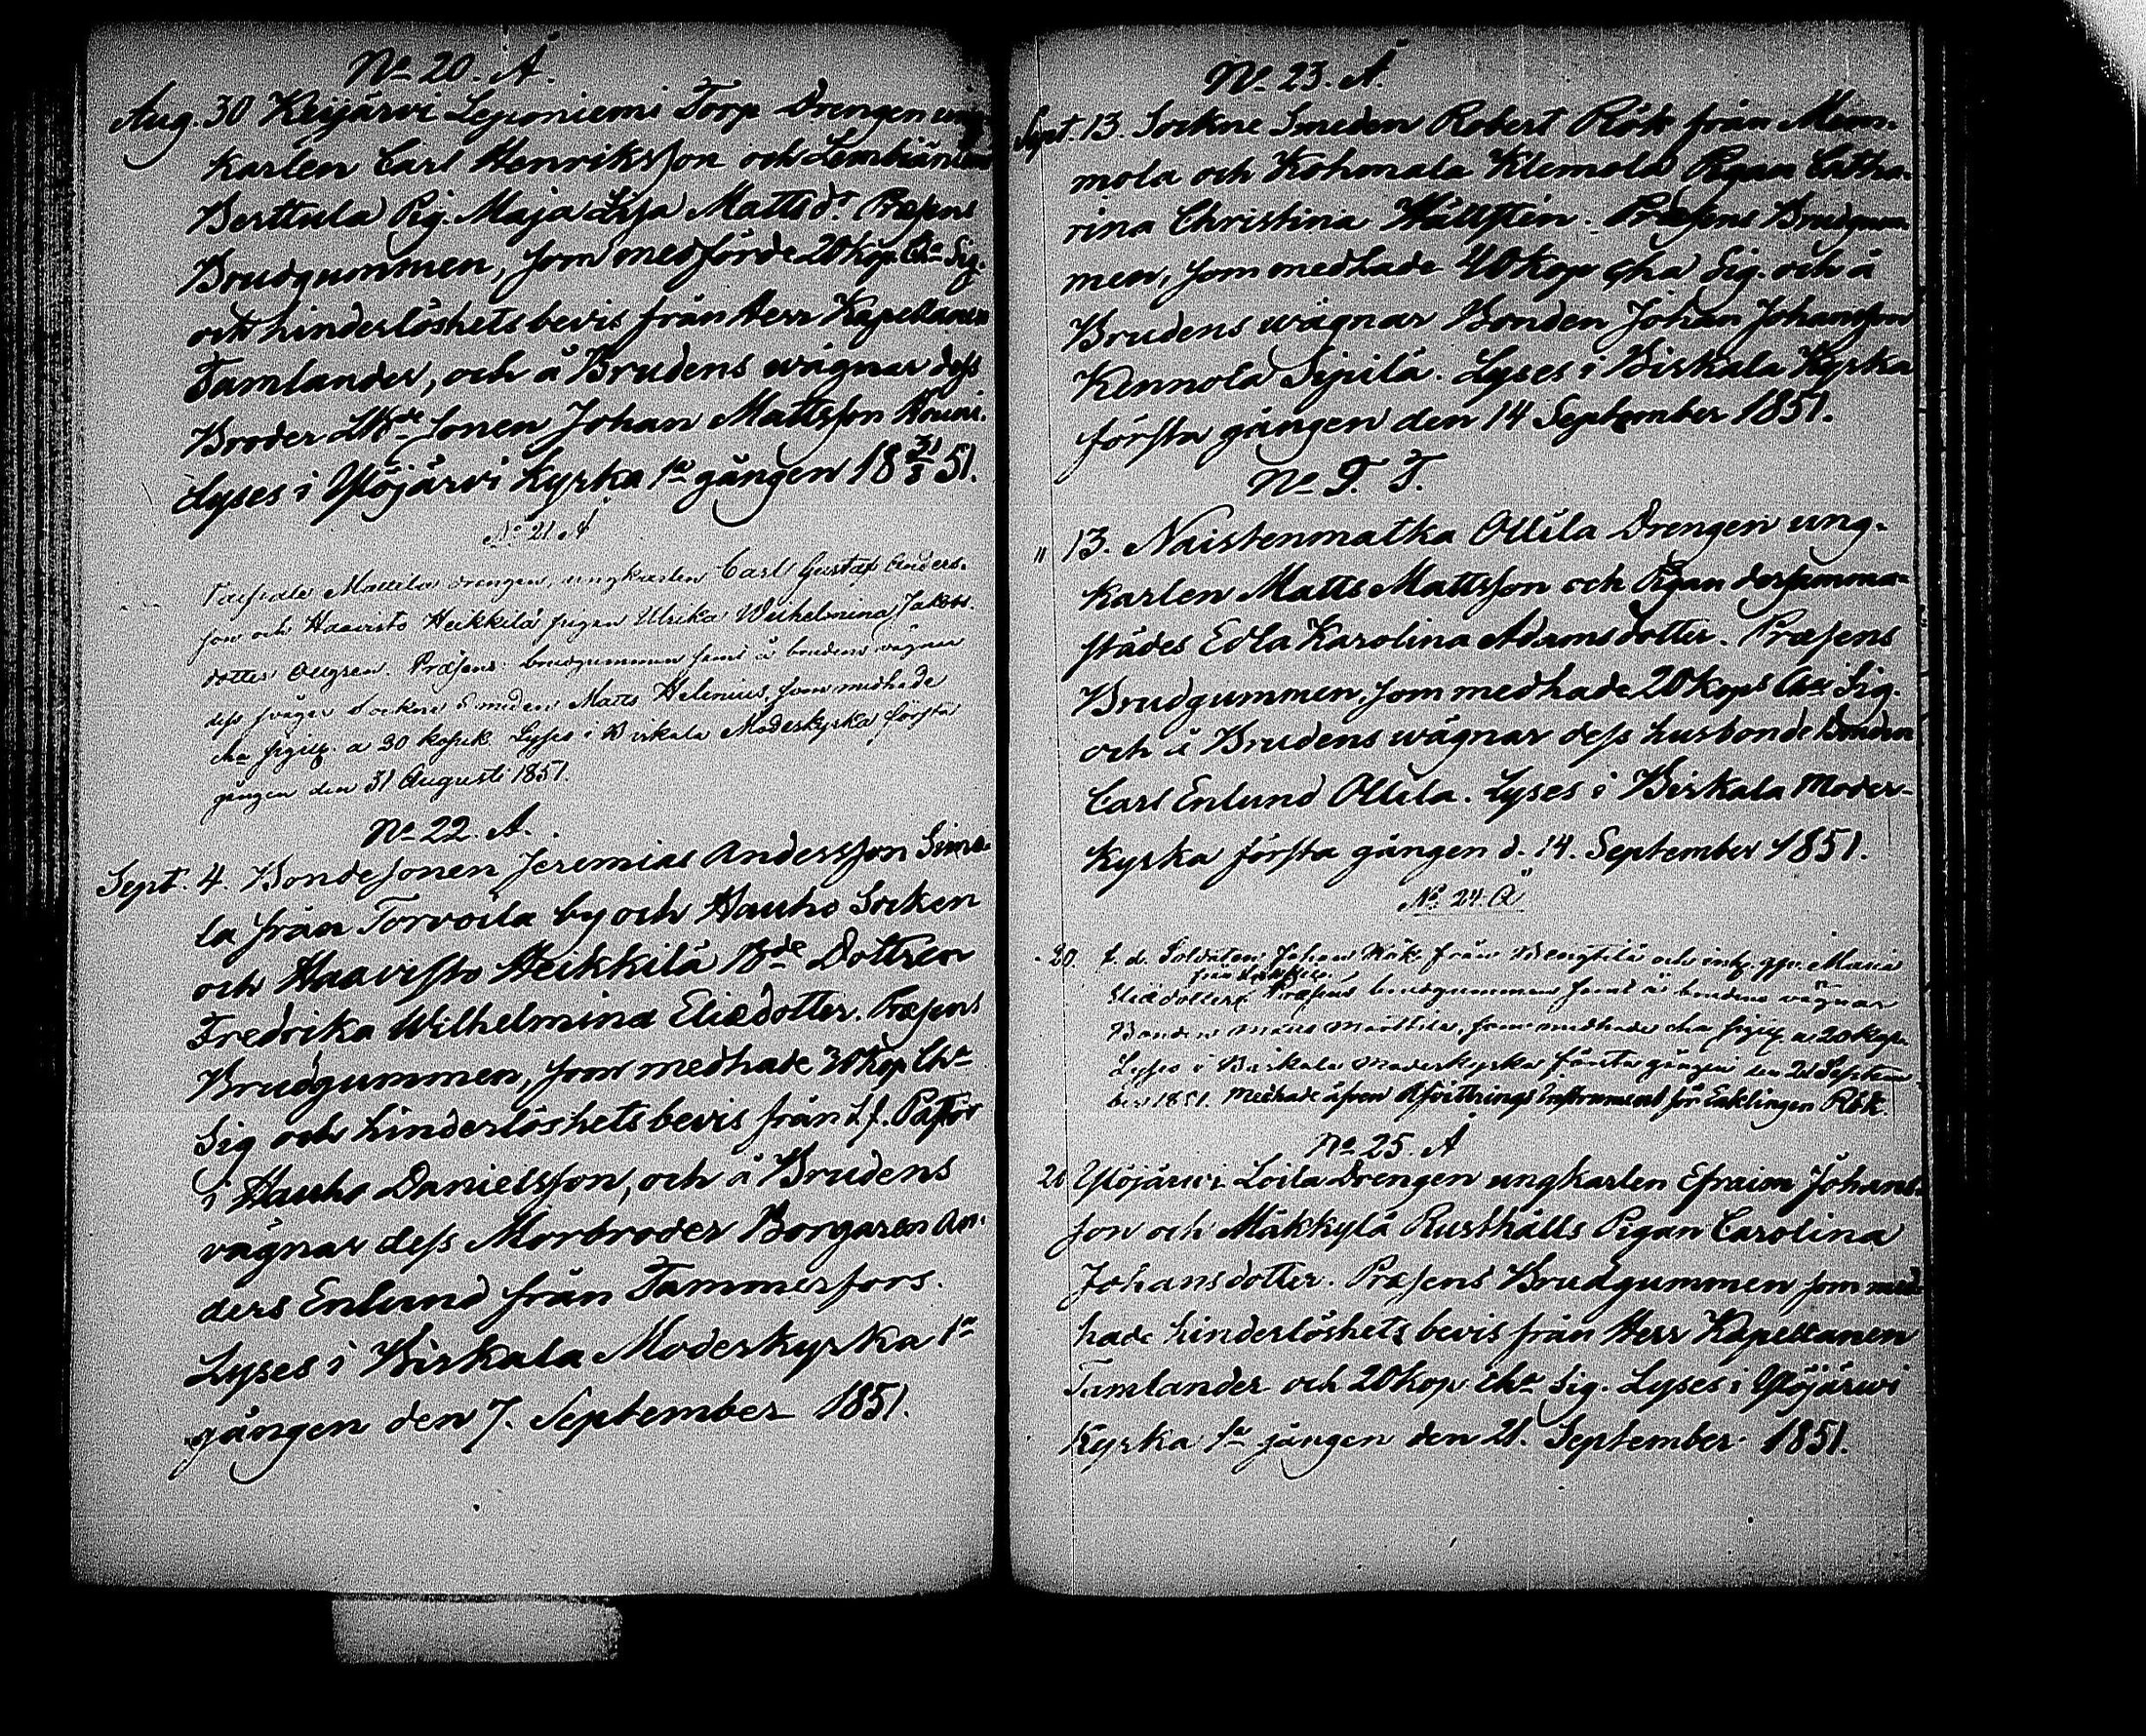 No 20. Å.
Aug. 30 Keijärvi Leponiemi Torp Drengen ung-
karlen Carl Henriksson och Lembiäniemi
Berttula Pig. Maja Lisa Mattsdr. Præsens
Brudgummen, som medförde 20 kop. Cha Sig.
och hinderlöshetsbevis från Herr Kapellanen
Tamlander, och å Brudens wägnar dess
Broder Sonen Johan Mattsson
Lyses i Ylöjärvi Kyrka 1a gången 18 31/8 51.
No 21 Å
Mattila drengen, ungkarlen Carl Gustaf Anders-
son och Haavisto Heikkilä pigan Ulrika Wilhelmina Jakobs-
dotter Ollgren. Præsens brudgummen samt å brudens wägnar
dess swåger Sockne Smeden Matts Helenius, som medhade
cha sigill. a 30 kopek. Lyses i Birkala Moderkyrka första
gången den 31 Augusti 1851.
No 22. Å.
Sept. 4. Bondesonen Jeremias Andersson Simo-
la från Torvoila by och Hauho Socken
och Haavisto Heikkilä Bde Dottren
Fredrika Wilhelmina Eliædotter. Præsens
Brudgummen, som medhade 30 kop. Cha
Sig och hinderlöshetsbevis från t.f. Pastor
i Hauho Danielsson, och å Brudens
vägnar dess Morbroder Borgaren An-
ders Enlund från Tammerfors.
Lyses i Birkala Moderkyrka 1a
gången den 7. September 1851.
No 23. Å.
Sept. 13. Sockne Smeden Robert Rök från Mem-
mola och Kohmala Klemola Pigan Catha-
rina Christina Hällstin. Præsens Brudgum-
men, som medhade 40 kop cha Sig. och å
Brudens wägnar Bonden Johan Johansson
Kennola Sipilä. Lyses i Birkala Kyrka
första gången den 14 September 1851.
No 9. T.
" 13. Naistenmatka Ollila Drengen ung-
karlen Matts Mattsson och Pigan dersamma-
städes Edla Karolina Adamsdotter. Præsens
Brudgummen, som medhade 20 kops Cha Sig.
och å Brudens wägnar dess husbonde Bonden
Carl Enlund Ollila. Lyses i Birkala Moder-
kyrka första gången d. 14. September 1851.
No 24. Å
20. f. d. Soldaten Johan Rök från Bengtilä och inh. Maria
från
Eliædotter. Præsens brudgummen samt å brudens wägnar
Bonden Matts Mattila, som medhade cha sigill. a 20 kop.
Lyses i Birkala Moderkyrka första gången den 21 Septem-
ber 1851. Medhade äfven Afvittrings Instrument för Enklingen Rök.
No 25. Å
21 Ylöjärvi Loila Drengen ungkarlen Efraim Johans-
son och Mäkkylä Rusthålls Pigan Carolina
Johansdotter. Præsens Brudgummen som med-
hade hinderlöshets bevis från Herr Kapellanen
Tamlander och 20 kop cha Sig. Lyses i Ylöjärwi
Kyrka 1a gången den 21. September 1851.